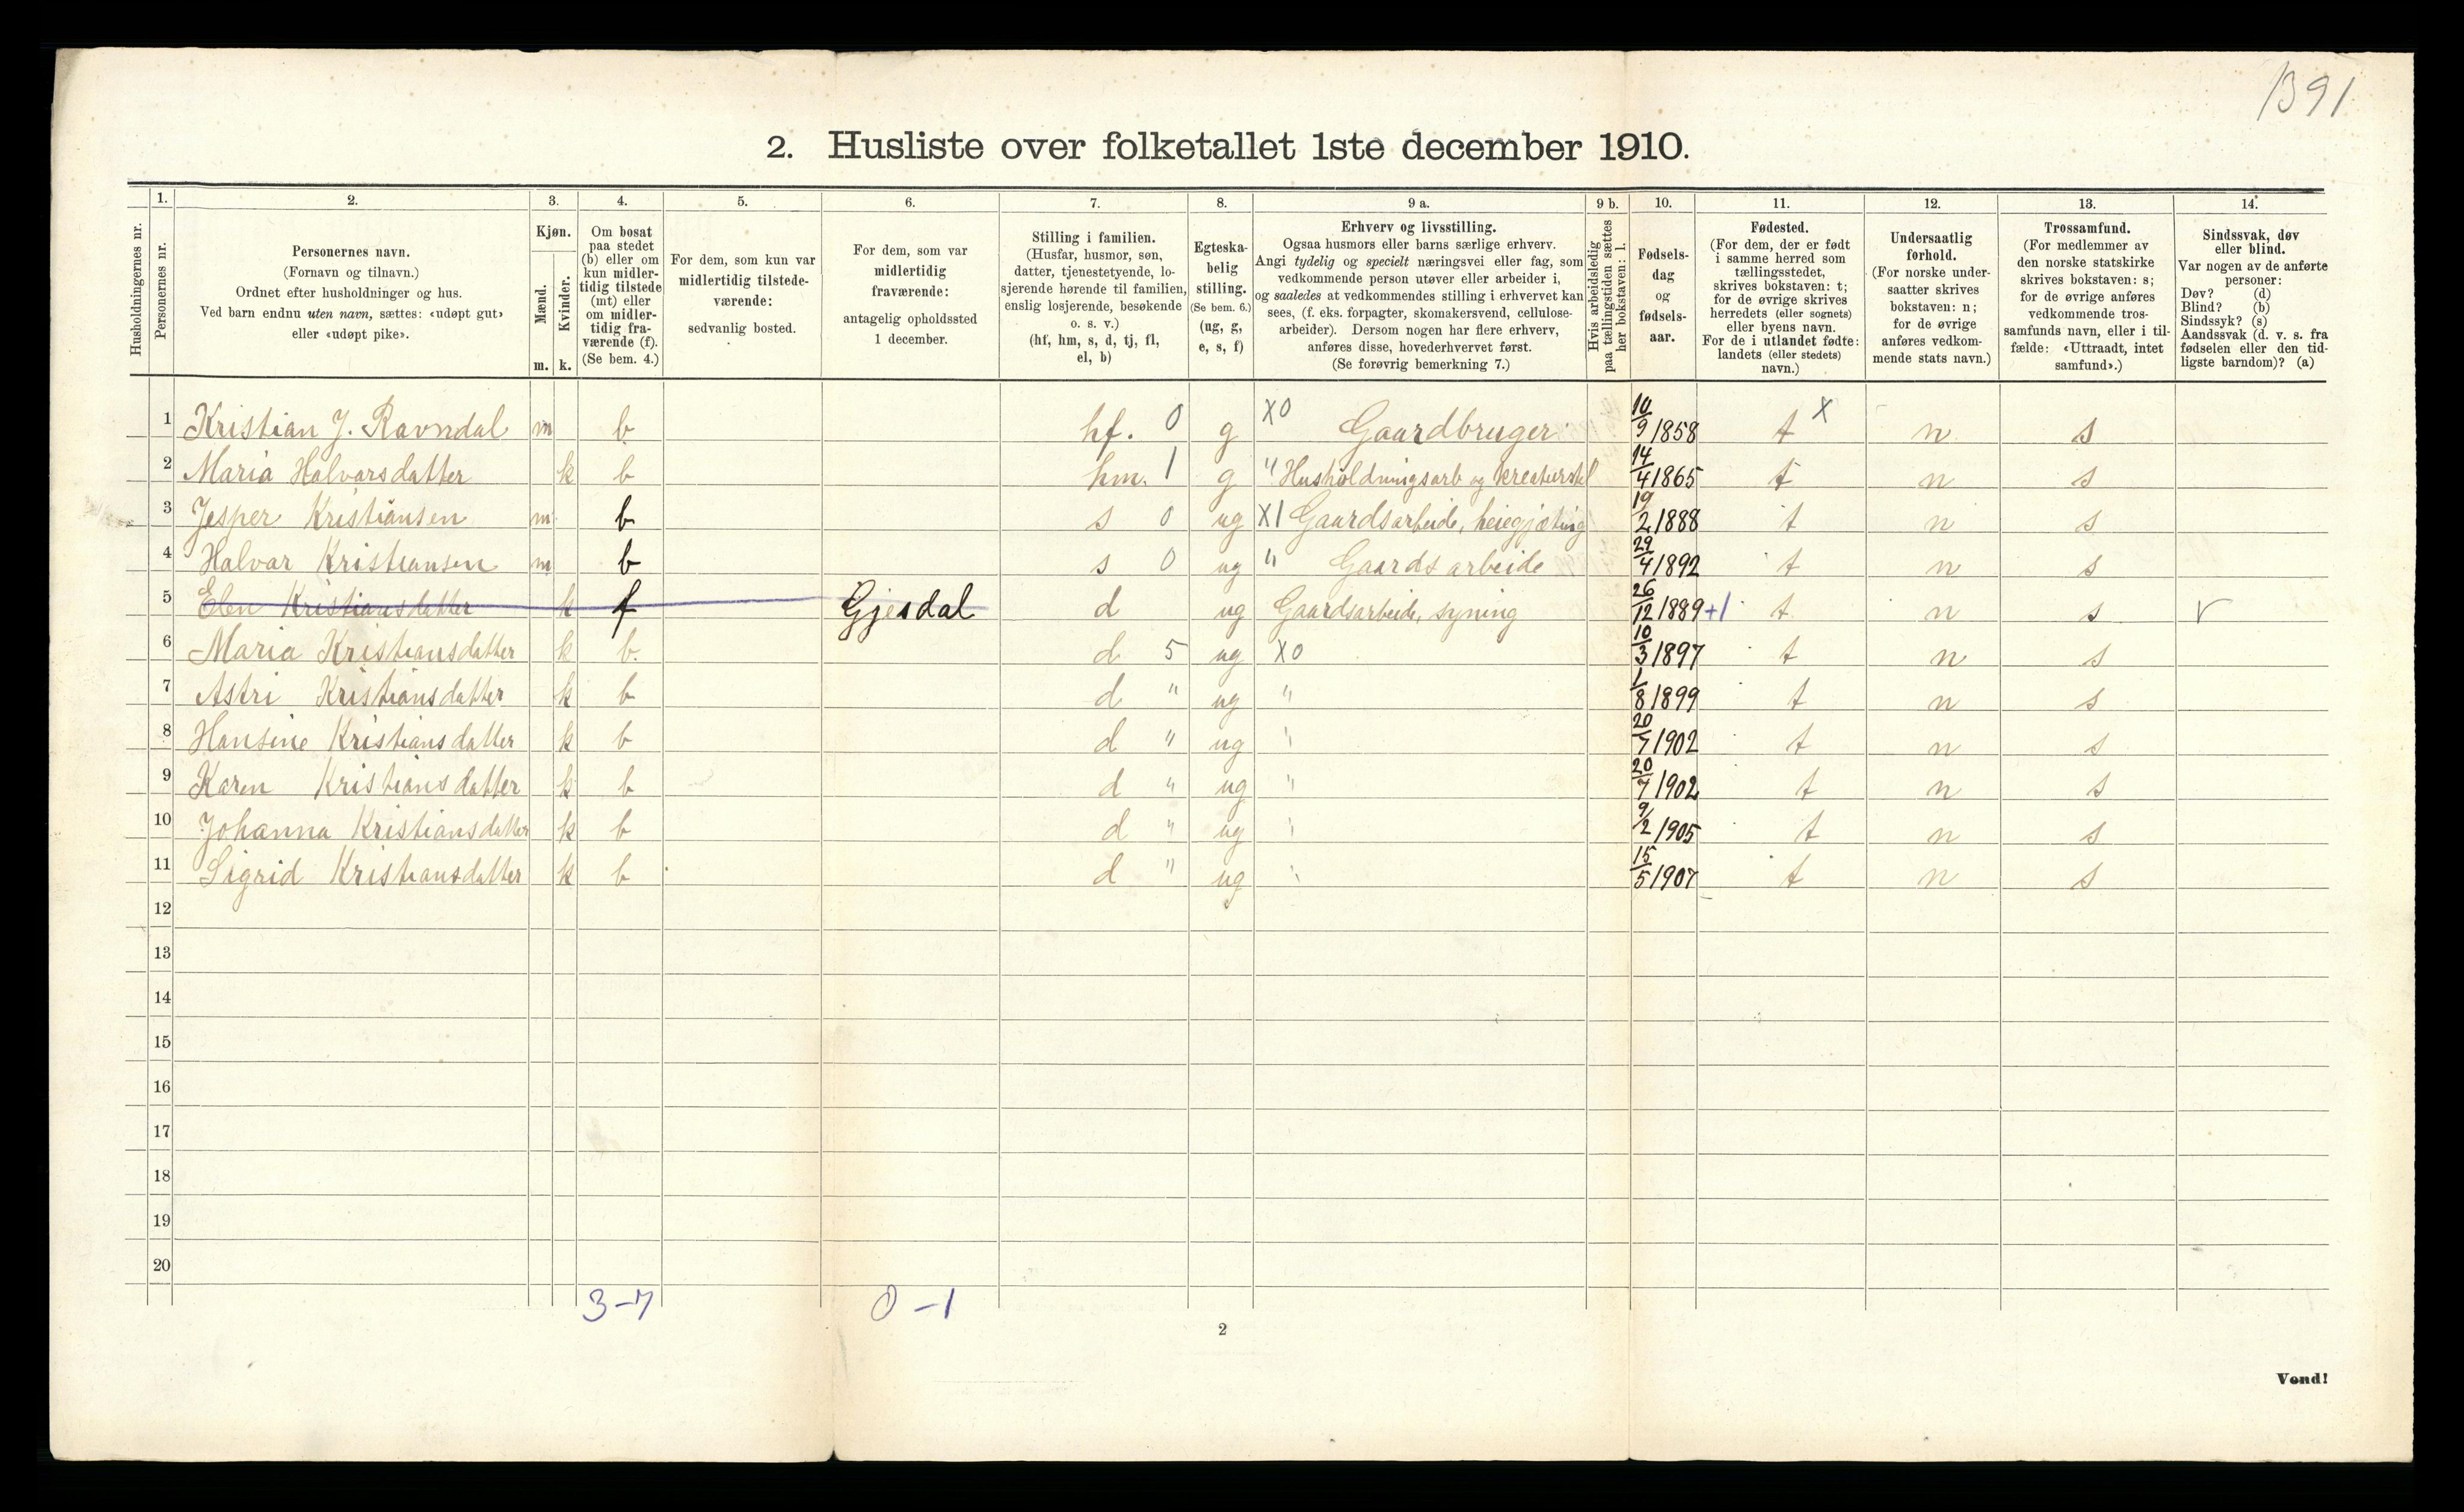 B91
2. Husliste over folketallet 1ste december 1910.
Husholdningernes nr.
1. Personernes nr.
2. Personernes navn. (Fornavn og tilnavn.) Ordnet efter husholdninger og hus. Ved barn endnu uten navn, sættes: «udøpt gut» eller «udøpt pike».
3. Kjøn. Mænd. m. Kvinder. k.
4. Om bosat paa stedet (b) eller om kun midlertidig tilstede (mt) eller om midlertidig fraværende (f). (Se bem. 4.)
5. For dem, som kun var midlertidig tilstedeværende: sedvanlig bosted.
6. For dem, som var midlertidig fraværende: antagelig opholdssted 1 december.
7. Stilling i familien. (Husfar, husmor, søn, datter, tjenestetyende, losjerende hørende til familien, enslig losjerende, besøkende o. s. v.) (hf, hm, s, d, tj, fl, el, b)
8. Egteskabelig stilling. (Se bem. 6.) (ug, g, e, s, f)
9 a. Erhverv og livsstilling. Ogsaa husmors eller barns særlige erhverv. Angi tydelig og specielt næringsvei eller fag, som vedkommende person utøver eller arbeider i, og saaledes at vedkommendes stilling i erhvervet kan sees, (f. eks. forpagter, skomakersvend, cellulosearbeider). Dersom nogen har flere erhverv, anføres disse, hovederhvervet først. (Se forøvrig bemerkning 7.)
9 b. Hvis arbeidsledig paa tællingstiden sættes her bokstaven: l.
10. Fødselsdag og fødselsaar.
11. Fødested. (For dem, der er født i samme herred som tællingsstedet, skrives bokstaven: t; for de øvrige skrives herredets (eller sognets) eller byens navn. For de i utlandet fødte: landets (eller stedets) navn.)
12. Undersaatlig forhold. (For norske undersaatter skrives bokstaven: n; for de øvrige anføres vedkommende stats navn.)
13. Trossamfund. (For medlemmer av den norske statskirke skrives bokstaven: s; for de øvrige anføres vedkommende trossamfunds navn, eller i tilfælde: «Uttraadt, intet samfund».)
14. Sindssvak, døv eller blind. Var nogen av de anførte personer: Døv? (d) Blind? (b) Sindssyk? (s) Aandssvak (d. v. s. fra fødselen eller den tidligste barndom)? (a)
1 Kristian J. Ravndal m b hf. 0 g X0 Gaardbruger 10/9 1858 t X n s
2 Maria Halvarsdatter k b hm. 1 g " Husholdningsarb og kreaturstel 14/4 1865 t n s
3 Jesper Kristiansen m b s 0 ug X1 Gaardsarbeide, heiegjæting 19/2 1888 t n s
4 Halvar Kristiansen m b s 0 ug " Gaardsarbeide 29/4 1892 t n s
5 Elen Kristiansdatter k f Gjesdal d ug Gaardsarbeide, syning 26/12 1889 +1 t n s v
6 Maria Kristiansdatter k b. d 5 ug X0 10/3 1897 t n s
7 Astri Kristiansdatter k b d " ug " 1/8 1899 t n s
8 Hansine Kristiansdatter k b d " ug " 20/7 1902 t n s
9 Karen Kristiansdatter k b d " ug " 20/7 1902 t n s
10 Johanna Kristiansdatter k b d " ug " 9/2 1905 t n s
11 Sigrid Kristiansdatter k b d " ug " 15/5 1907 t n s
12
13
14
15
16
17
18
19
20
3-7 0-1
2
Vend!